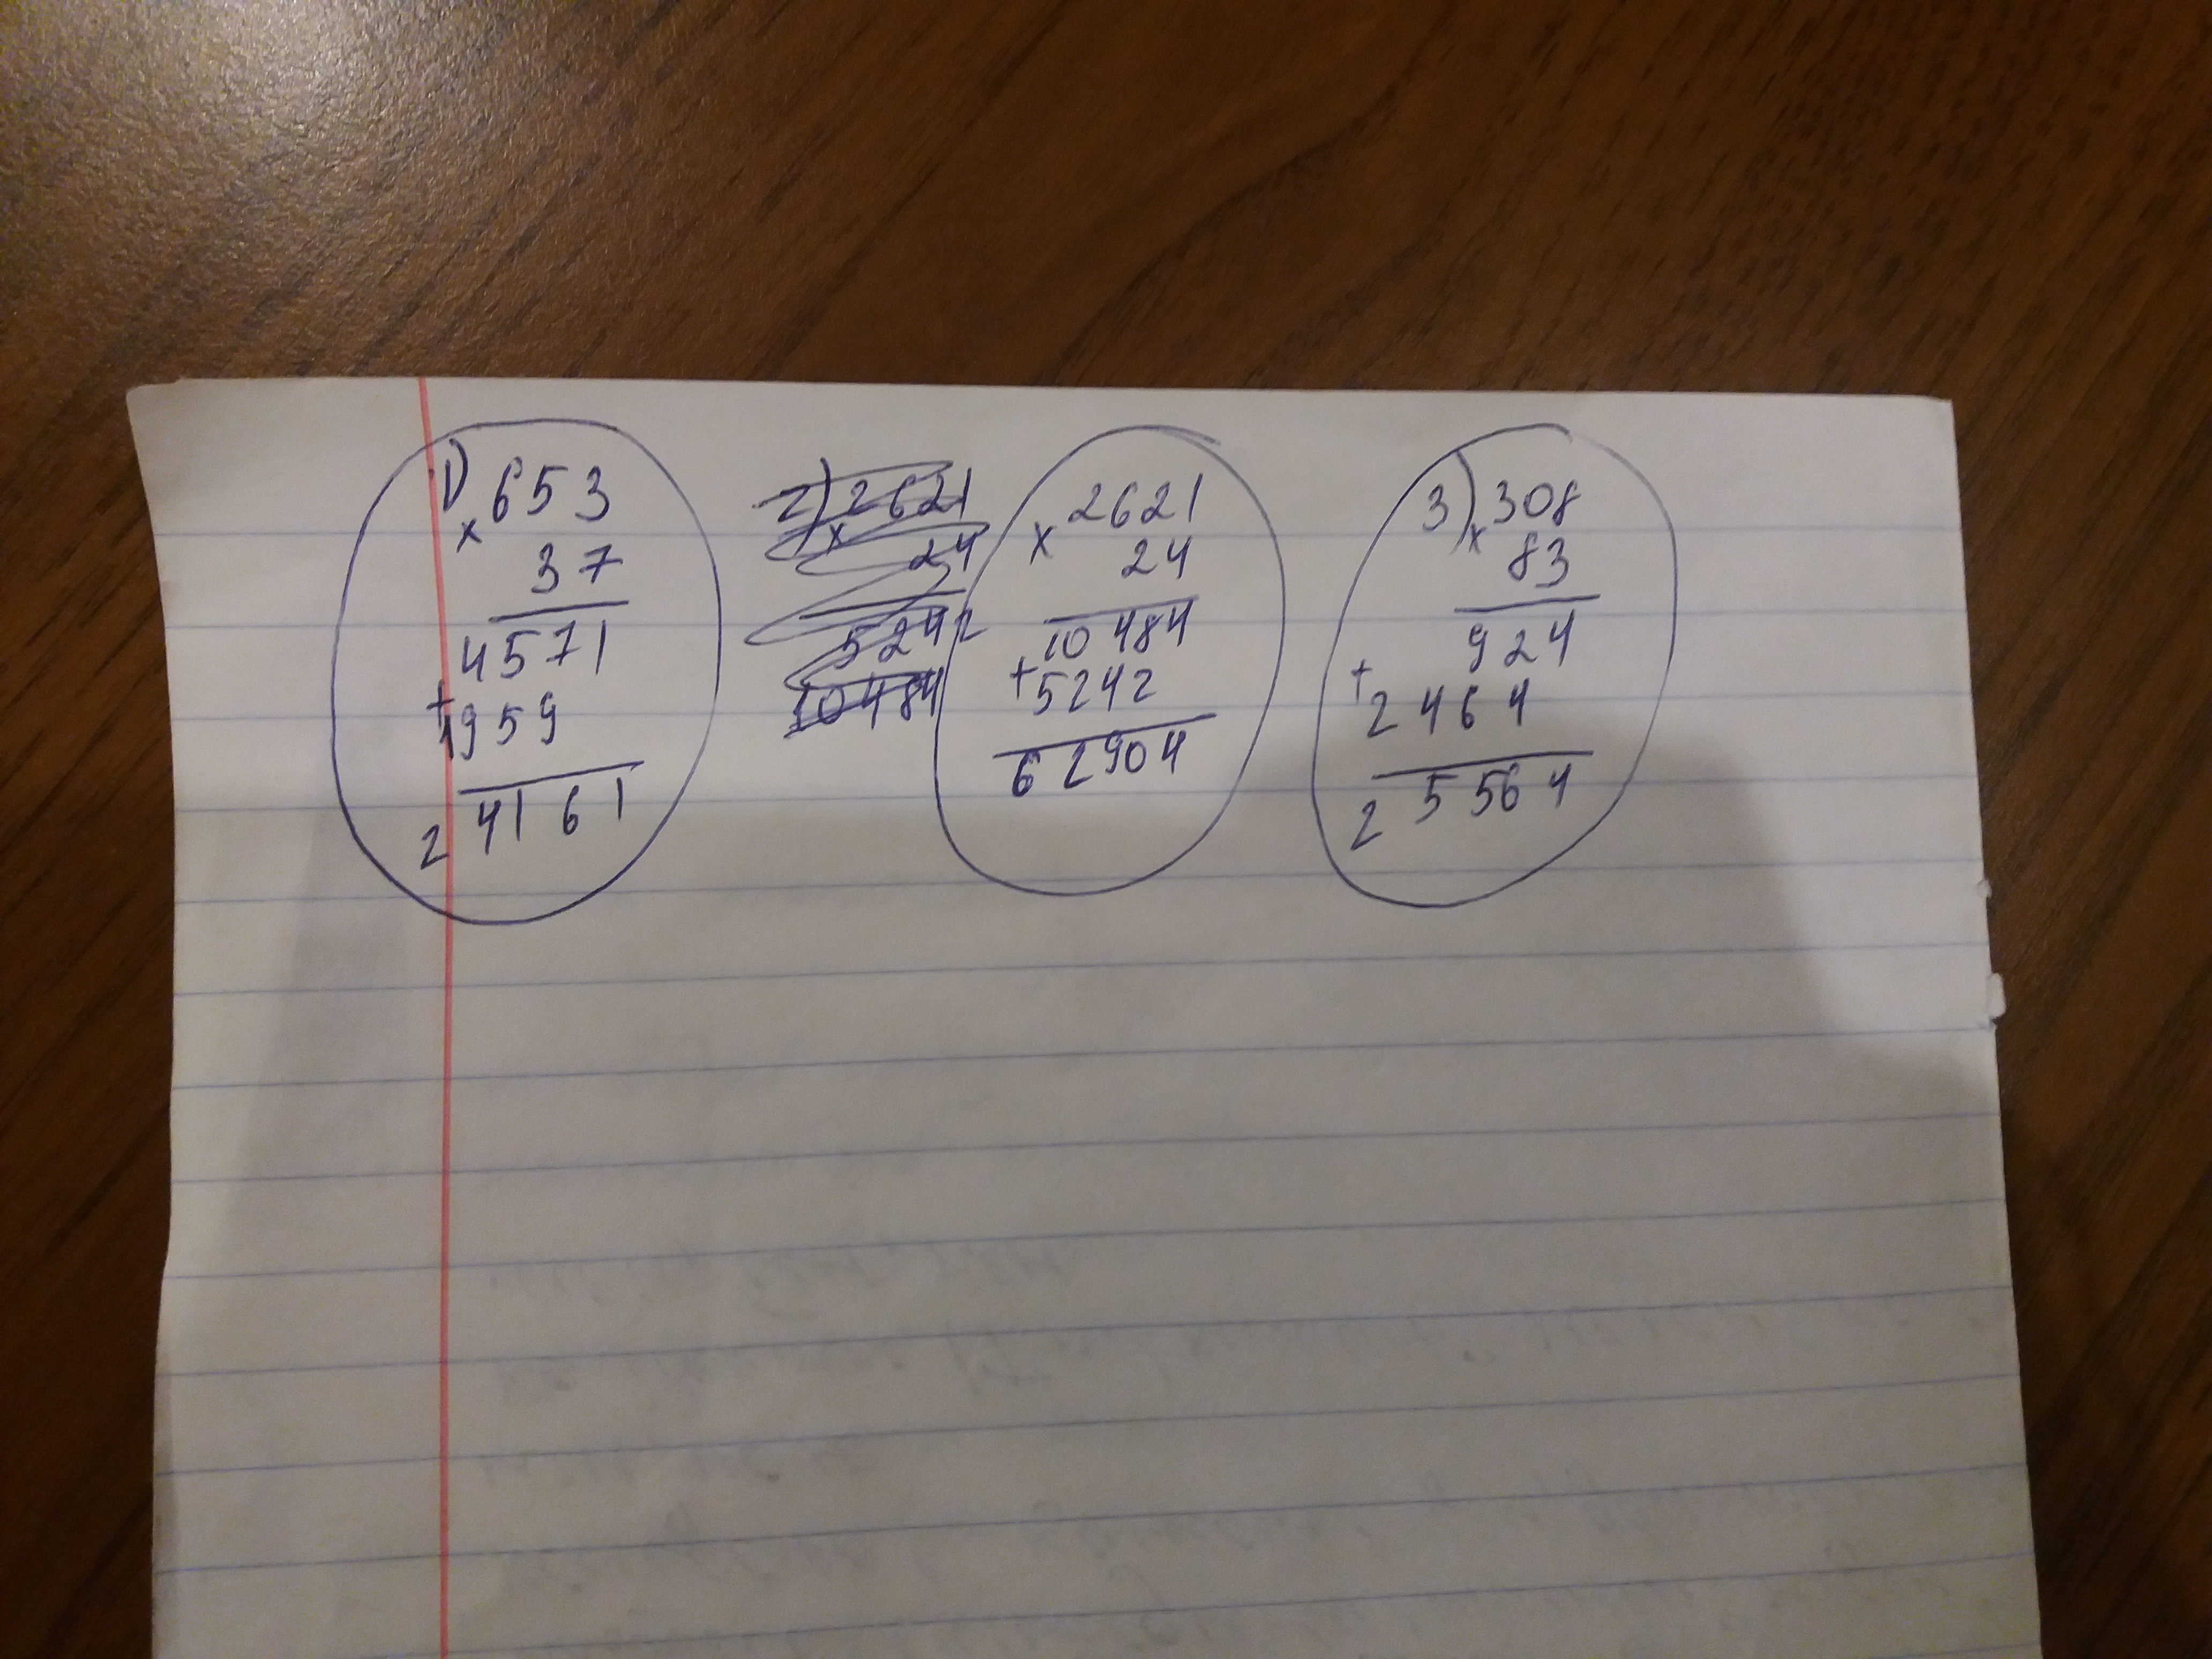 1) 653
x
37
4571
+
1959
24161
2) 2621
x
24
5242
10484
2621
x
24
10484
+
5242
62904
3) 308
x
83
924
+
2464
25564